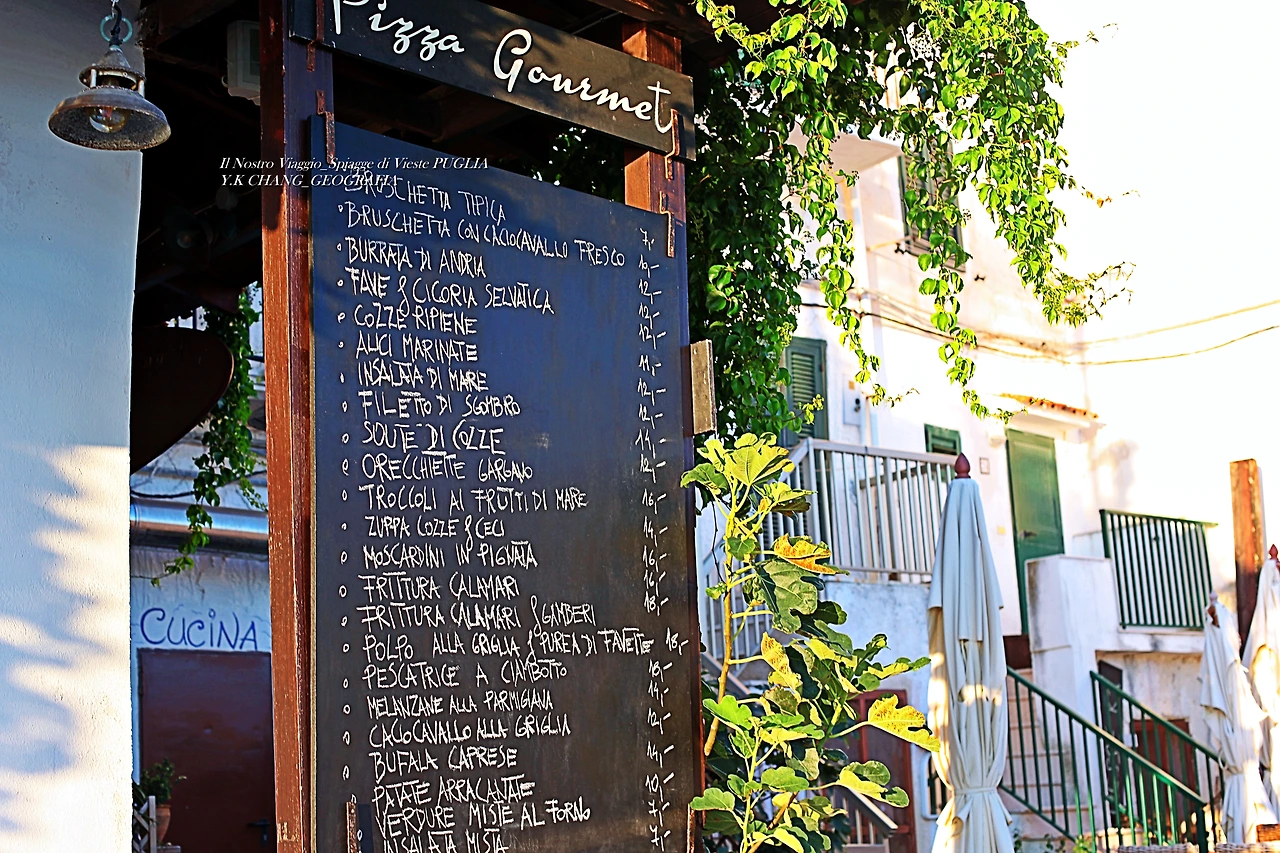 Pizza Gourmet
Il Nostro Viaggio_Spiagge di Vieste PUGLIA
Y.K CHANG_GEOGRAFIA
BRUSCHETTA TIPICA 7,-
BRUSCHETTA CON CACIOCAVALLO FRESCO 10,-
BURRATA DI ANDRIA 12,-
FAVE & CICORIA SELVATICA 12,-
COZZE RIPIENE 12,-
ALICI MARINATE 11,-
INSALATA DI MARE 12,-
FILETTO DI SGOMBRO 12,-
SOUTÈ DI COZZE 14,-
ORECCHIETTE GARGANO 12,-
TROCCOLI AI FRUTTI DI MARE 16,-
ZUPPA COZZE & CECI 14,-
MOSCARDINI IN PIGNATA 16,-
FRITTURA CALAMARI 16,-
FRITTURA CALAMARI & GAMBERI 18,-
POLPO ALLA GRIGLIA & PUREA DI FAVETTE 18,-
PESCATRICE A CIAMBOTTO 18,-
MELANZANE ALLA PARMIGIANA 14,-
CACIOCAVALLO ALLA GRIGLIA 12,-
BUFALA CAPRESE 14,-
PATATE ARRACANATE 10,-
VERDURE MISTE AL FORNO 7,-
INSALATA MISTA 7,-
CUCINA